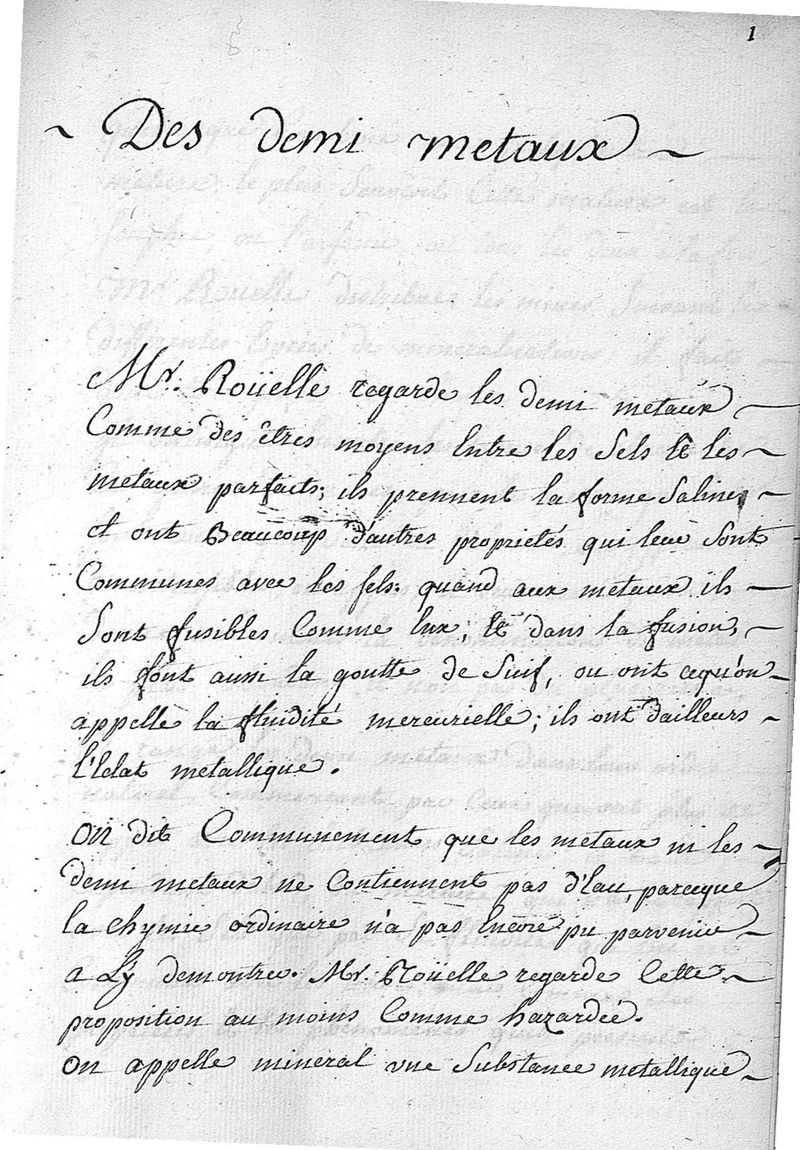 1
~ Des demi metaux ~
Mr. Roüelle regarde les demi metaux
Comme des êtres moyens Entre les Sels et les
metaux parfaits; ils prennent la forme Saline,
et ont Beaucoup d'autres proprietés qui leur Sont
Communes avec les sels. quand aux metaux ils
Sont fusibles Comme Eux; et dans la fusion,
ils font aussi la goutte de Suif, ou ont cequ'on
appelle la fluidité mercurielle; ils ont dailleurs
l'Eclat metallique.
on dit Communement que les metaux ni les
demi metaux ne Contiennent pas d'Eau, parceque
la chymie ordinaire n'a pas Encore pu parvenir
a L'y demontrer. Mr. Roüelle regarde Cette
proposition au moins Comme hazardée.
on appelle mineral vne Substance metallique